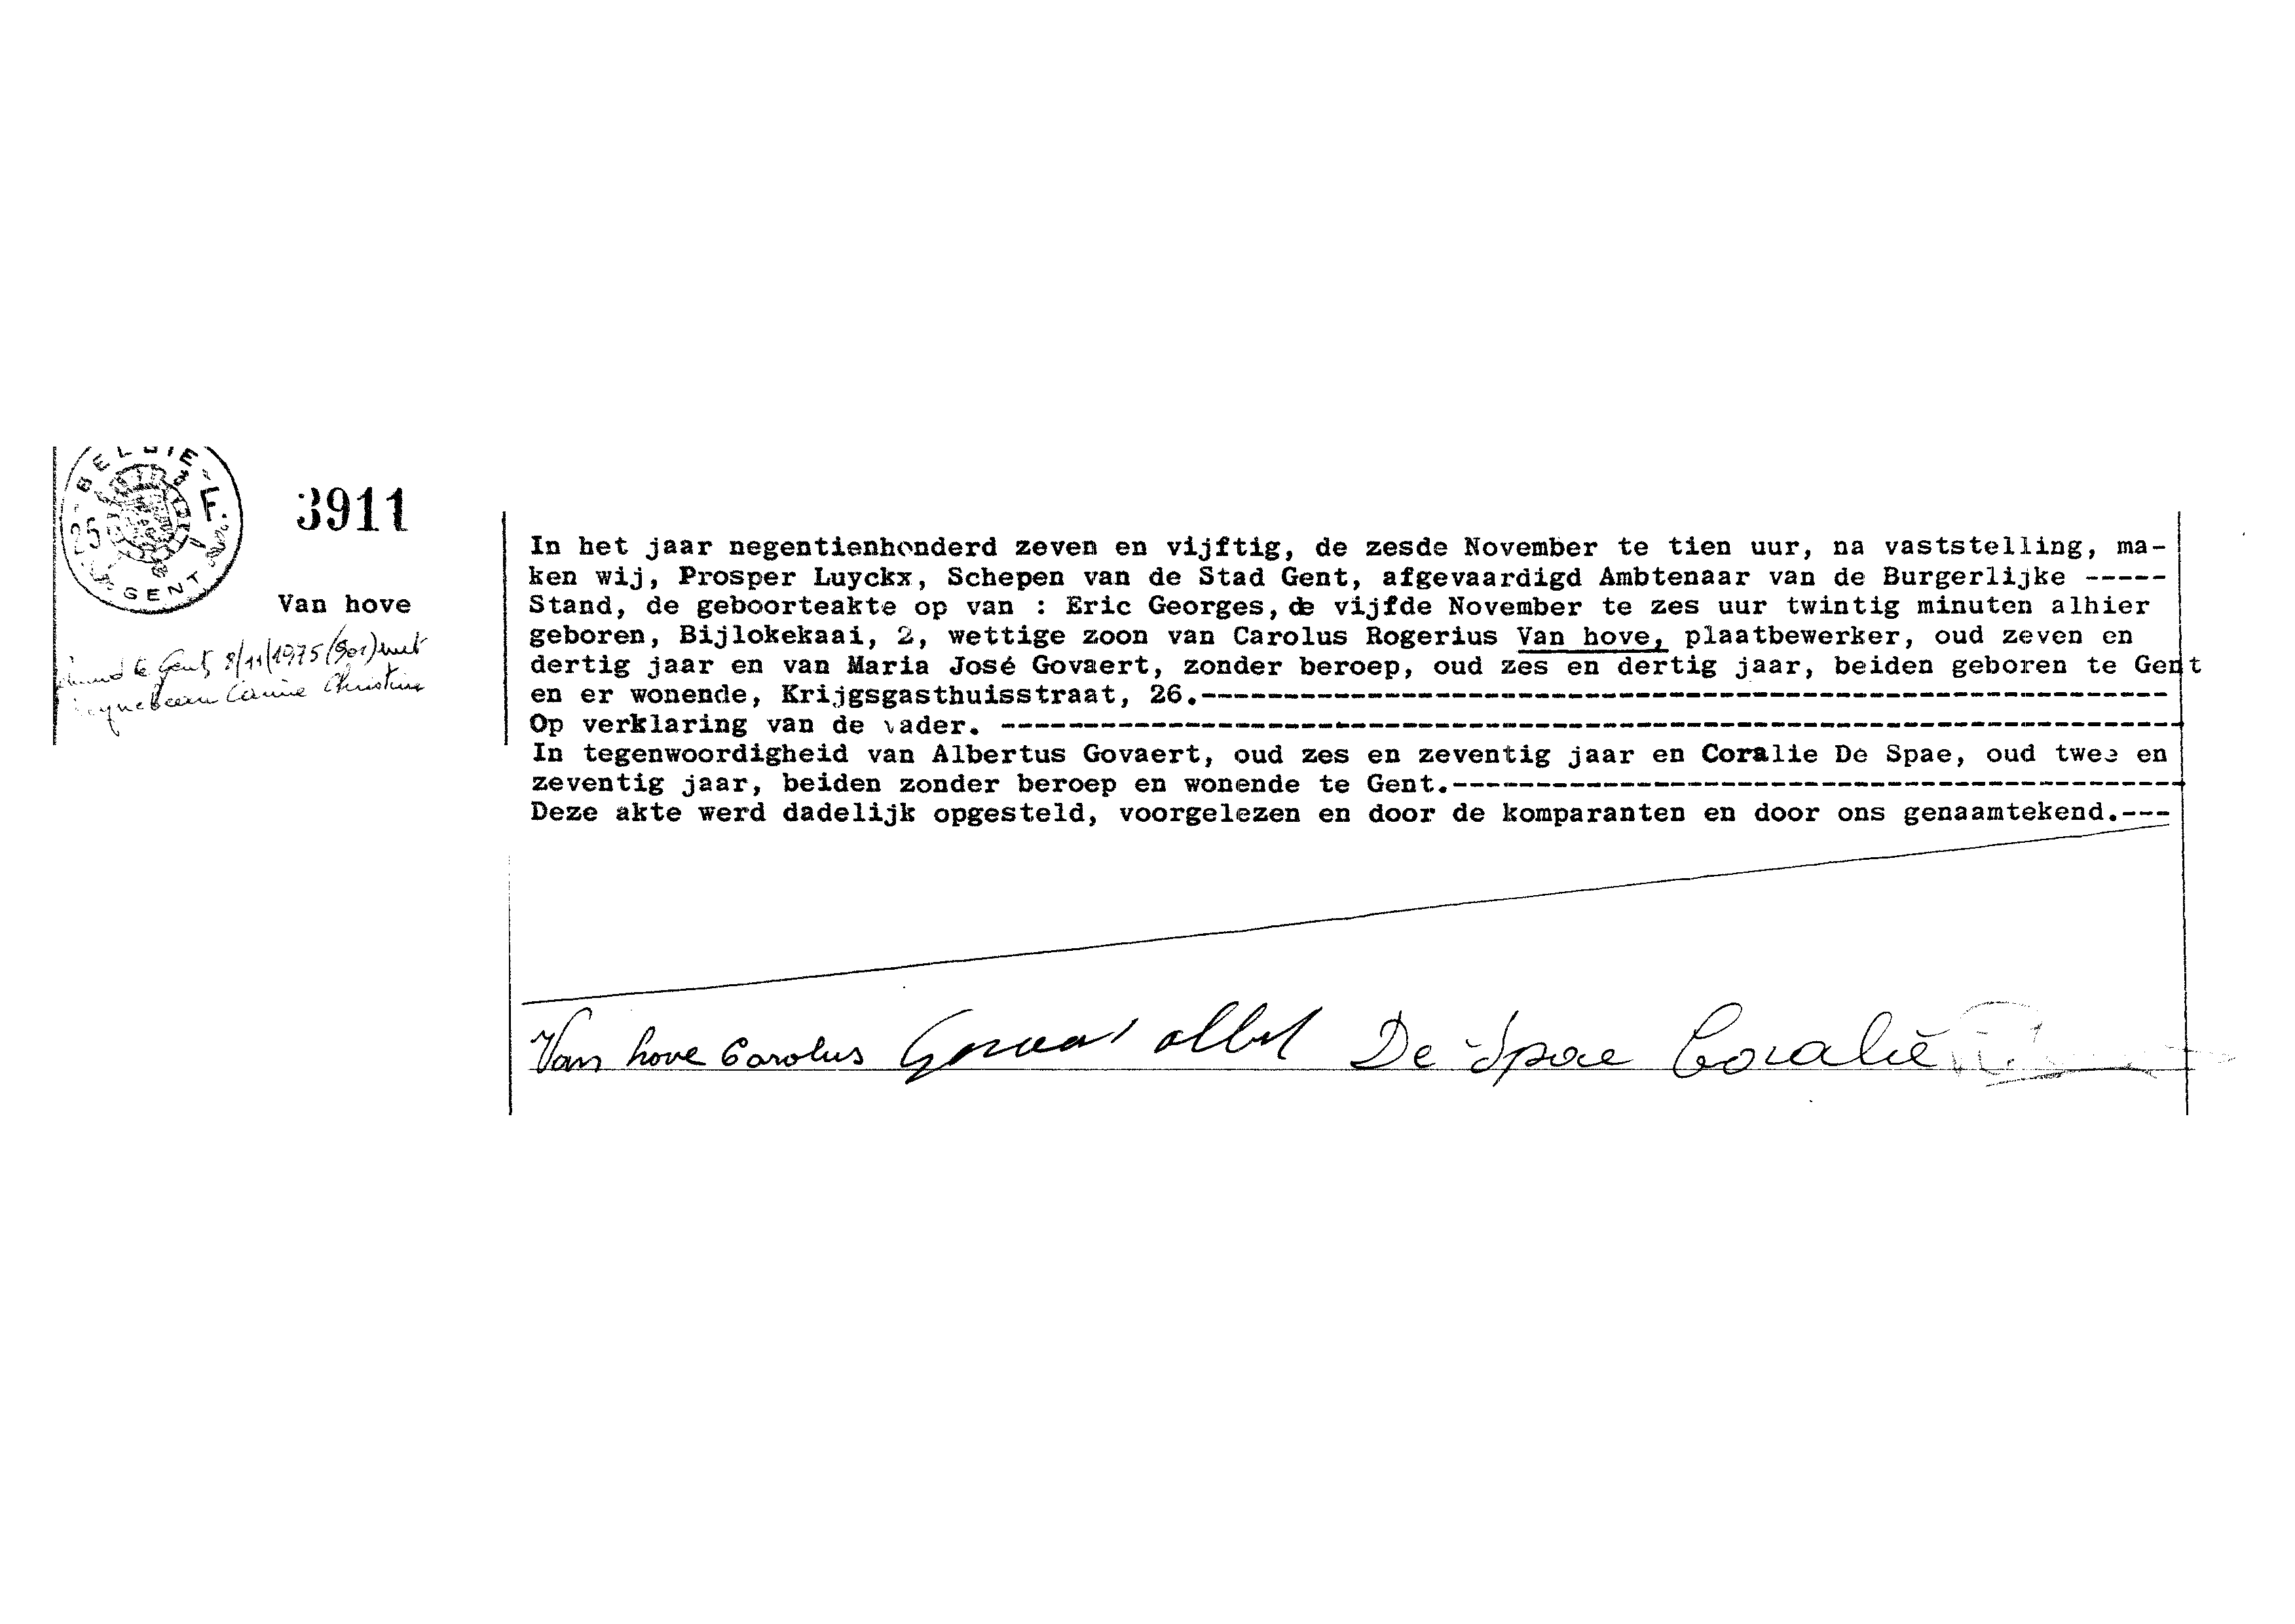 BELGIE
25 F.
GENT
3911
Van hove
te Gent, 8/11/1975 (901) met
Carine Christine
In het jaar negentienhonderd zeven en vijftig, de zesde November te tien uur, na vaststelling, ma-
ken wij, Prosper Luyckx, Schepen van de Stad Gent, afgevaardigd Ambtenaar van de Burgerlijke -----
Stand, de geboorteakte op van : Eric Georges, de vijfde November te zes uur twintig minuten alhier
geboren, Bijlokekaai, 2, wettige zoon van Carolus Rogerius Van hove, plaatbewerker, oud zeven en
dertig jaar en van Maria José Govaert, zonder beroep, oud zes en dertig jaar, beiden geboren te Gent
en er wonende, Krijgsgasthuisstraat, 26.----------------------------------------------------------
Op verklaring van de vader. ----------------------------------------------------------------------
In tegenwoordigheid van Albertus Govaert, oud zes en zeventig jaar en Coralie De Spae, oud twee en
zeventig jaar, beiden zonder beroep en wonende te Gent.-------------------------------------------
Deze akte werd dadelijk opgesteld, voorgelezen en door de komparanten en door ons genaamtekend.---
Van hove Carolus Govaert albert De Spae Coralie